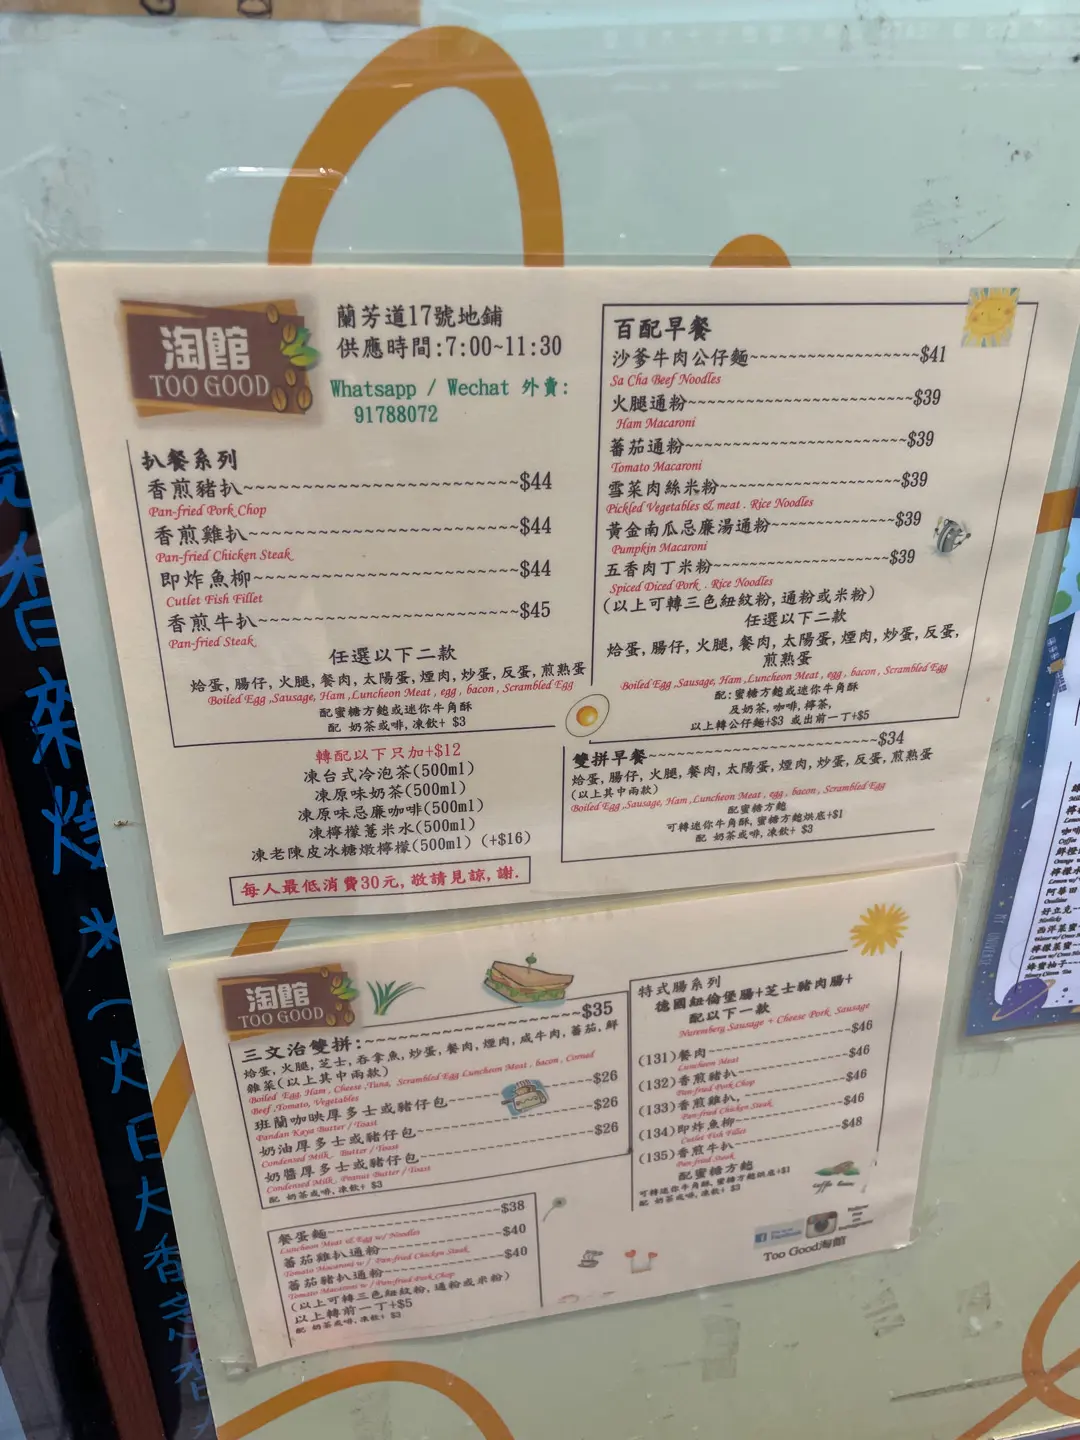 淘館
TOO GOOD
蘭芳道17號地鋪
供應時間:7:00~11:30
Whatsapp / Wechat 外賣:
91788072
扒餐系列
香煎豬扒~~~~$44
Pan-fried Pork Chop
香煎雞扒~~~~$44
Pan-fried Chicken Steak
即炸魚柳~~~~$44
Cutlet Fish Fillet
香煎牛扒~~~~$45
Pan-fried Steak
任選以下二款
烚蛋,腸仔,火腿,餐肉,太陽蛋,煙肉,炒蛋,反蛋,煎熟蛋
Boiled Egg ,Sausage, Ham ,Luncheon Meat , egg , bacon , Scrambled Egg
配蜜糖方飽或迷你牛角酥
配 奶茶或啡,凍飲+ $3
轉配以下只加+$12
凍台式冷泡茶(500ml)
凍原味奶茶(500ml)
凍原味忌廉咖啡(500ml)
凍檸檬薏米水(500ml)
凍老陳皮冰糖燉檸檬(500ml) (+$16)
每人最低消費30元,敬請見諒,謝.
百配早餐
沙爹牛肉公仔麵~~~~$41
Sa Cha Beef Noodles
火腿通粉~~~~$39
Ham Macaroni
蕃茄通粉~~~~$39
Tomato Macaroni
雪菜肉絲米粉~~~~$39
Pickled Vegetables & meat . Rice Noodles
黃金南瓜忌廉湯通粉~~~~$39
Pumpkin Macaroni
五香肉丁米粉~~~~$39
Spiced Diced Pork . Rice Noodles
(以上可轉三色紐紋粉,通粉或米粉)
任選以下二款
烚蛋,腸仔,火腿,餐肉,太陽蛋,煙肉,炒蛋,反蛋,
煎熟蛋
Boiled Egg ,Sausage, Ham ,Luncheon Meat , egg , bacon , Scrambled Egg
配:蜜糖方飽或迷你牛角酥
及奶茶,咖啡,檸茶,
以上轉公仔麵+$3 或出前一丁+$5
雙拼早餐~~~~$34
烚蛋,腸仔,火腿,餐肉,太陽蛋,煙肉,炒蛋,反蛋,煎熟蛋
(以上其中兩款)
Boiled Egg ,Sausage, Ham ,Luncheon Meat , egg , bacon , Scrambled Egg
配蜜糖方飽
可轉迷你牛角酥,蜜糖方飽烘底+$1
配 奶茶或啡,凍飲+ $3
淘館
TOO GOOD
三文治雙拼:~~~~$35
烚蛋,火腿,芝士,吞拿魚,炒蛋,餐肉,煙肉,咸牛肉,蕃茄,鮮
雜菜(以上其中兩款)
Boiled Egg, Ham , Cheese ,Tuna, Scrambled Egg Luncheon Meat , bacon , Corned
Beef ,Tomato, Vegetables
班蘭咖央厚多士或豬仔包~~~~$26
Pandan Kaya Butter / Toast
奶油厚多士或豬仔包~~~~$26
Condensed Milk , Butter / Toast
奶醬厚多士或豬仔包~~~~$26
Condensed Milk , Peanut Butter / Toast
配 奶茶或啡,凍飲+ $3
餐蛋麵~~~~$38
Luncheon Meat & Egg w/ Noodles
蕃茄雞扒通粉~~~~$40
Tomato Macaroni w / Pan-fried Chicken Steak
蕃茄豬扒通粉~~~~$40
Tomato Macaroni w / Pan-fried Pork Chop
(以上可轉三色紐紋粉,通粉或米粉)
以上轉前一丁+$5
配 奶茶或啡,凍飲+ $3
特式腸系列
德國紐倫堡腸+芝士豬肉腸+
配以下一款
Nuremberg Sausage + Cheese Pork Sausage
(131)餐肉~~~~$46
Luncheon Meat
(132)香煎豬扒~~~~$46
Pan-fried Pork Chop
(133)香煎雞扒,~~~~$46
Pan-fried Chicken Steak
(134)即炸魚柳~~~~$46
Cutlet Fish Fillet
(135)香煎牛扒~~~~$48
Pan-fried Steak
配蜜糖方飽
可轉迷你牛角酥,蜜糖方飽烘底+$1
配 奶茶或啡,凍飲+ $3
Too Good淘館